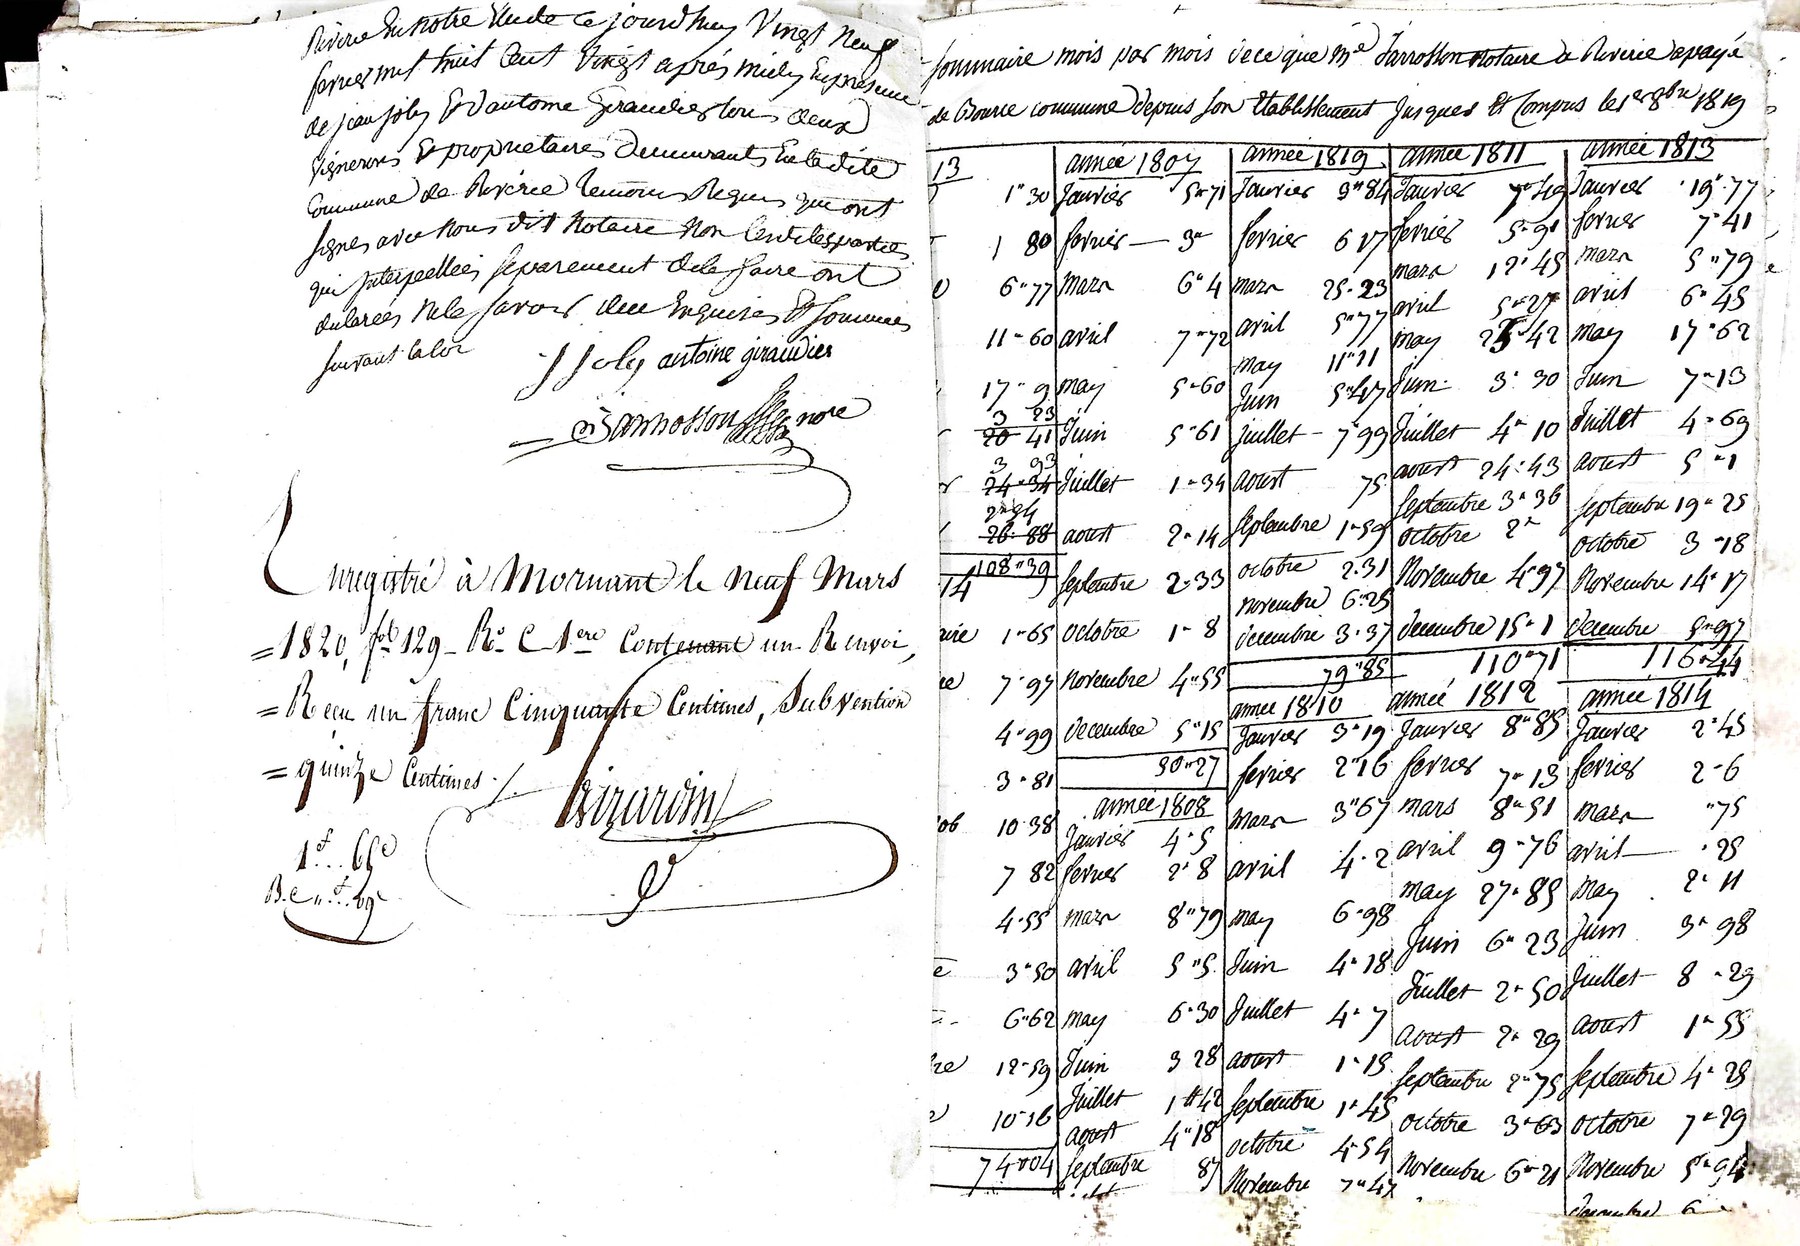 Riverie En notre Etude ce jourd'huy Vingt neuf
fevrier mil huit Cent Vingt après midy En presence
de jean joly Et d'antoine Giraudier tous deux
Vignerons & proprietaires demeurants En la dite
Commune de Riverie temoins Requis qui ont
signés avec nous dit notaire non les dites parties
qui Interpellées separement de le faire ont
declarés ne le savoir de ce Enquises Et sommées
suivant la loi
J Joly antoine giraudier
Jarrosson nore
Enregistré à Mornant le neuf Mars
=1820, fol 129 Ro C 1ere Contenant un Renvoi,
= Reçu un franc Cinquante Centimes, Subvention
= quinze Centimes ./.
Girardin
1f.. 65c
sommaire mois par mois de ce que Me Jarrosson notaire a Riverie a payé
de Bource commune depuis son Etablissement Jusques Et Compris le 1er 8bre 1819
13
1"30
1 80
6"77
11"60
17"9
3 23
20 41
3 93
24"34
2"54
26"88
108"39
14
1"65
7"97
4"99
3"81
10"38
7 82
4"55
3"50
6"62
12"59
10"16
74"04
année 1807
Janvier 5"71
fevrier — 3"
mars 6"4
avril 7"72
may 5"60
Juin 5"61
Juillet 1"34
aoust 2"14
Septembre 2"33
octobre 1"8
novembre 4"55
decembre 5"15
50"27
année 1808
Janvier 4"5
fevrier 2"8
mars 8"79
avril 5"5
may 6"30
Juin 3 28
Juillet 1"42
aoust 4"18
Septembre 87
année 1819
Janvier 3"84
fevrier 6 17
mars 25"23
avril 5"77
may 11"11
Juin 5"47
Juillet 7"99
aoust 75
Septembre 1"59
octobre 2"31
novembre 6"25
decembre 3"37
79"85
année 1810
Janvier 3"19
fevrier 2"16
mars 3"67
avril 4"2
may 6"98
Juin 4"18
Juillet 4"7
aoust 1"15
Septembre 1"45
octobre 4"54
Novembre 7"47
année 1811
Janvier 7"49
fevrier 5"91
mars 12"45
avril 5"27
may 25"42
Juin 3"30
Juillet 4"10
aoust 24"43
Septembre 3"36
octobre 2"
Novembre 4"97
decembre 15"1
110"71
année 1812
Janvier 8"85
fevrier 7"13
mars 8"51
avril 9"76
may 27"85
Juin 6"23
Juillet 2"50
aoust 2"29
Septembre 2"75
octobre 3"63
Novembre 6"21
année 1813
Janvier 19"77
fevrier 7"41
mars 5"79
avril 6"45
may 17"62
Juin 7"13
Juillet 4"69
aoust 5"1
Septembre 19"25
octobre 3"18
Novembre 14"17
decembre 5"97
116"44
année 1814
Janvier 2"45
fevrier 2"6
mars "75
avril "25
may 2"11
Juin 3"98
Juillet 8"29
aoust 1"55
Septembre 4"25
octobre 7"29
Novembre 5"94
decembre 6